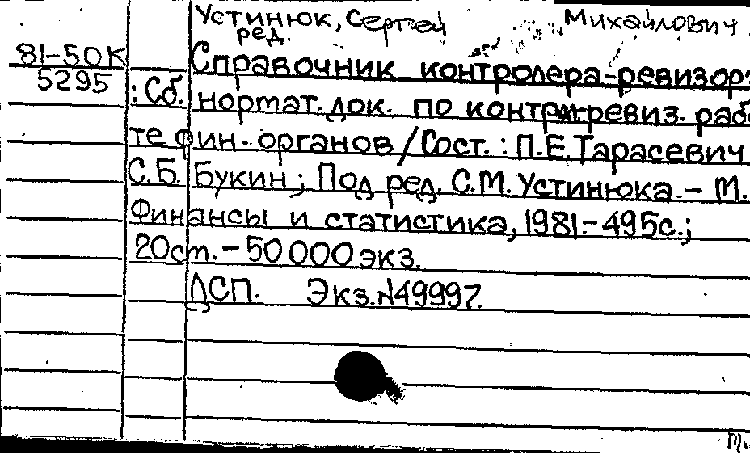 Устинюк, Сергей Михайлович
ред.
81-50К
5295
Справочник контролера-ревизора
: Сб. нормат. док. по контр.-ревиз. рабо
те фин. органов / Сост.: П.Е. Тарасевич
С.Б. Букин; Под ред. С.М. Устинюка. - М.
Финансы и статистика, 1981. - 495с.;
20 см. - 50 000 экз.
ДСП. Экз. №49997.